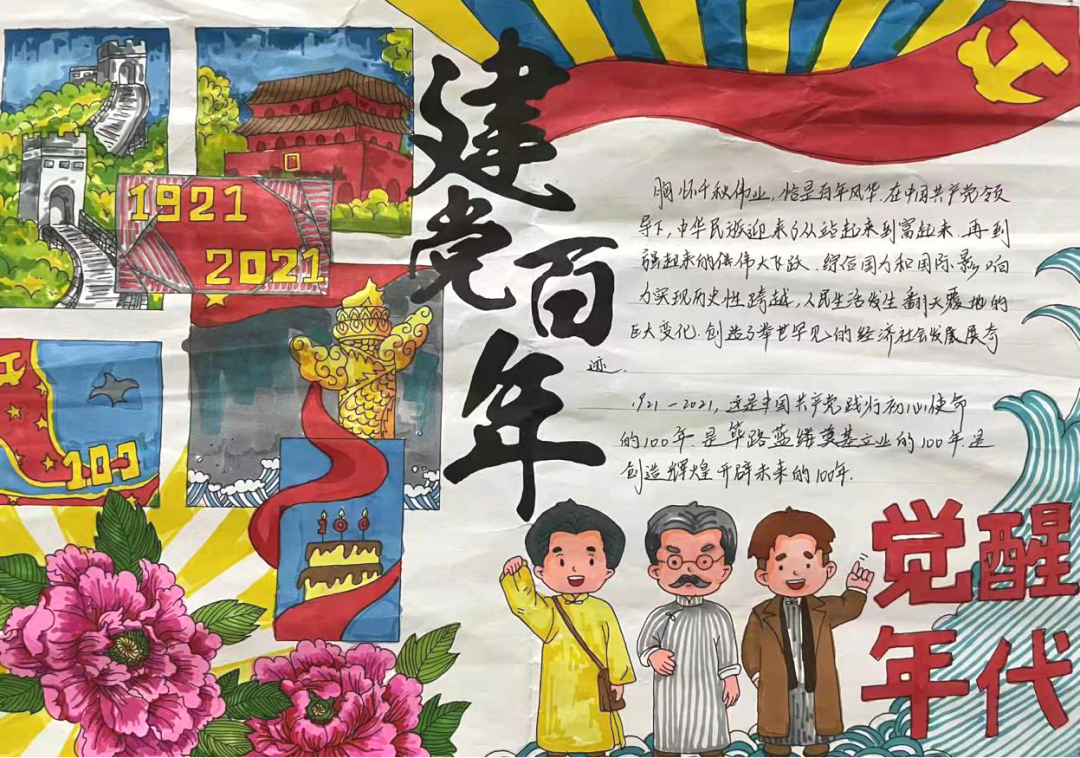 建党百年
1921
2021
100
100
胸怀千秋伟业，恰是百年风华，在中国共产党领
导下，中华民族迎来了从站起来到富起来、再到
强起来的伟大飞跃．综合国力和国际影响
力实现历史性跨越，人民生活发生翻天覆地的
巨大变化．创造了举世罕见的经济社会发展奇
迹．
1921－2021，这是中国共产党践行初心使命
的100年 是筚路蓝缕奠基立业的100年 是
创造辉煌开辟未来的100年．
觉醒
年代